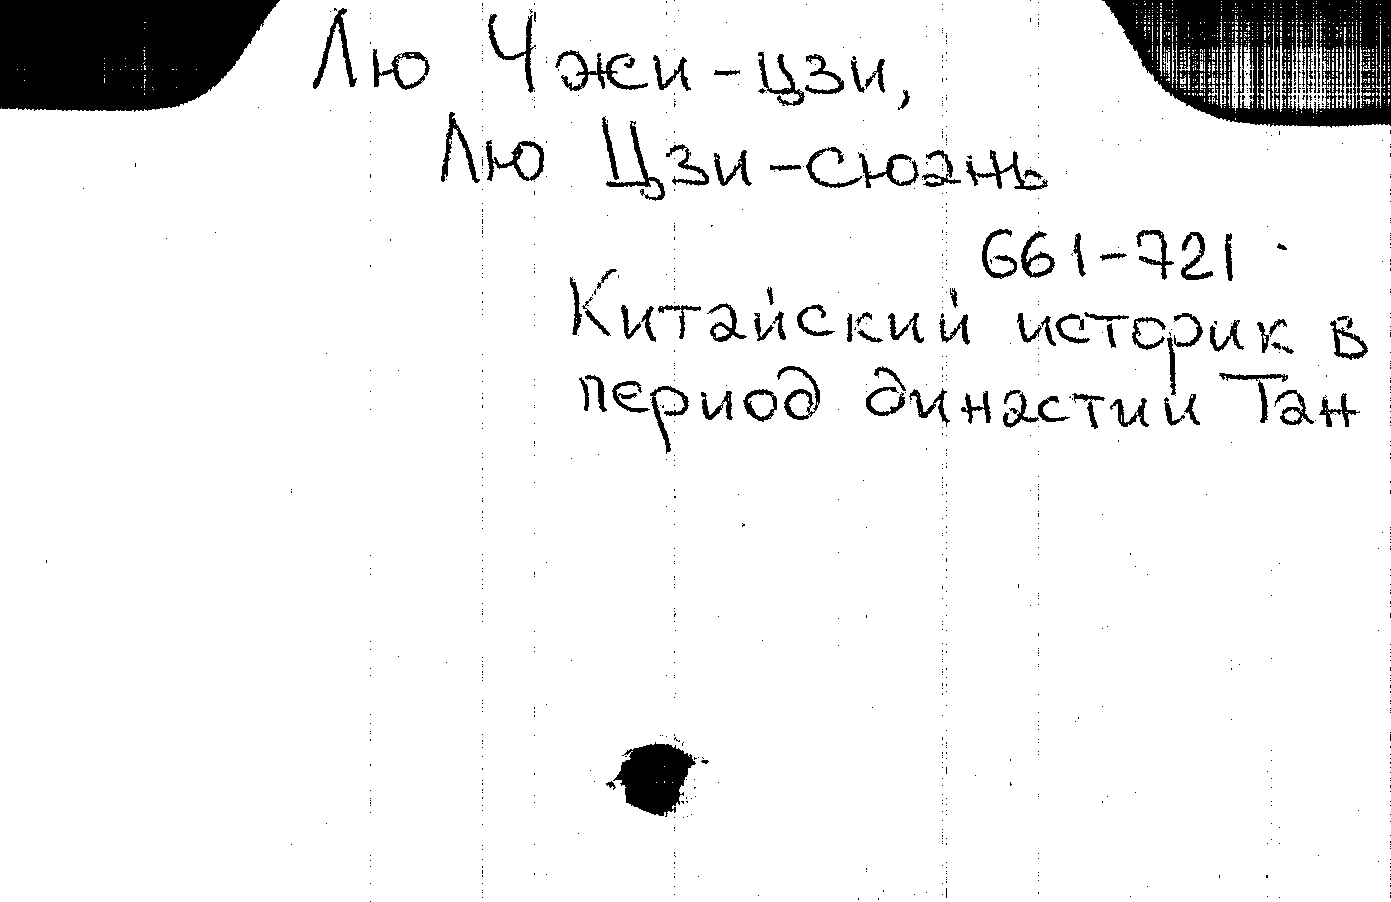 Лю Чжи-цзи,
Лю Цзи-сюань
661-721
Китайский историк в
период династии Тан